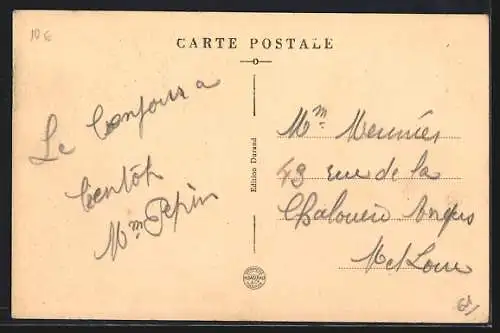 10€
CARTE POSTALE
Le bonjour a
bientôt
Mme Pepin
Edition Durand
Mme Meunier
43 rue de la
Chalouère Angers
M et Loire